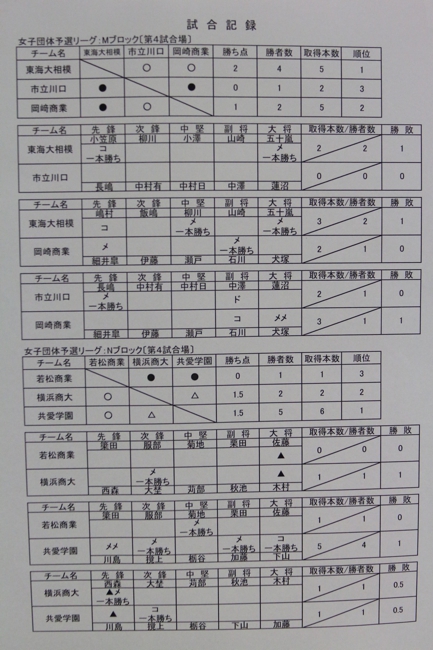 試合記録
女子団体予選リーグ：Mブロック〔第4試合場〕
チーム名 東海大相模 市立川口 岡崎商業 勝ち点 勝者数 取得本数 順位
東海大相模 〇 〇 2 4 5 1
市立川口 ● ● 0 1 2 3
岡崎商業 ● 〇 1 2 5 2
チーム名 先鋒 次鋒 中堅 副将 大将 取得本数/勝者数 勝敗
東海大相模 小笠原 柳川 小澤 山崎 五十嵐 2 2 1
コ メ
一本勝ち 一本勝ち
市立川口 0 0 0
長嶋 中村有 中村日 中澤 蓮沼
チーム名 先鋒 次鋒 中堅 副将 大将 取得本数/勝者数 勝敗
東海大相模 嶋村 飯嶋 柳川 山崎 五十嵐 3 2 1
コ メ メ
一本勝ち 一本勝ち
岡崎商業 メ メ 2 1 0
一本勝ち
細井皐 伊藤 瀬戸 石川 犬塚
チーム名 先鋒 次鋒 中堅 副将 大将 取得本数/勝者数 勝敗
市立川口 長嶋 中村有 中村日 中澤 蓮沼 2 1 0
メ ド
一本勝ち
岡崎商業 コ メメ 3 1 1
細井皐 伊藤 瀬戸 石川 犬塚
女子団体予選リーグ：Nブロック〔第4試合場〕
チーム名 若松商業 横浜商大 共愛学園 勝ち点 勝者数 取得本数 順位
若松商業 ● ● 0 1 1 3
横浜商大 〇 △ 1.5 2 2 2
共愛学園 〇 △ 1.5 5 6 1
チーム名 先鋒 次鋒 中堅 副将 大将 取得本数/勝者数 勝敗
若松商業 栗田 服部 菊地 栗田 佐藤 0 0 0
▲
横浜商大 メ ▲ 1 1 1
一本勝ち
西森 大埜 苅部 秋池 木村
チーム名 先鋒 次鋒 中堅 副将 大将 取得本数/勝者数 勝敗
若松商業 栗田 服部 菊地 栗田 佐藤 1 1 0
メ
一本勝ち
共愛学園 メメ メ メ コ 5 4 1
一本勝ち 一本勝ち 一本勝ち
川島 撹上 栃谷 加藤 下山
チーム名 先鋒 次鋒 中堅 副将 大将 取得本数/勝者数 勝敗
横浜商大 西森 大埜 苅部 秋池 木村 1 1 0.5
▲メ
一本勝ち
共愛学園 ▲ コ 1 1 0.5
一本勝ち
川島 撹上 栃谷 下山 加藤